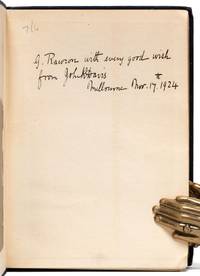 7/6
G. Rawson with every good wish
from John
Melbourne Nov. 17th 1924